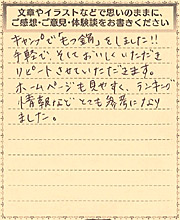 文章やイラストなどで思いのままに、
ご感想・ご意見・体験談をお書きください
キャンプで「もつ鍋」をしました!!
手軽で、そしておいしくいただき
リピートさせていただきます。
ホームページも見やすく、ランキング
情報など とても参考になり
ました。